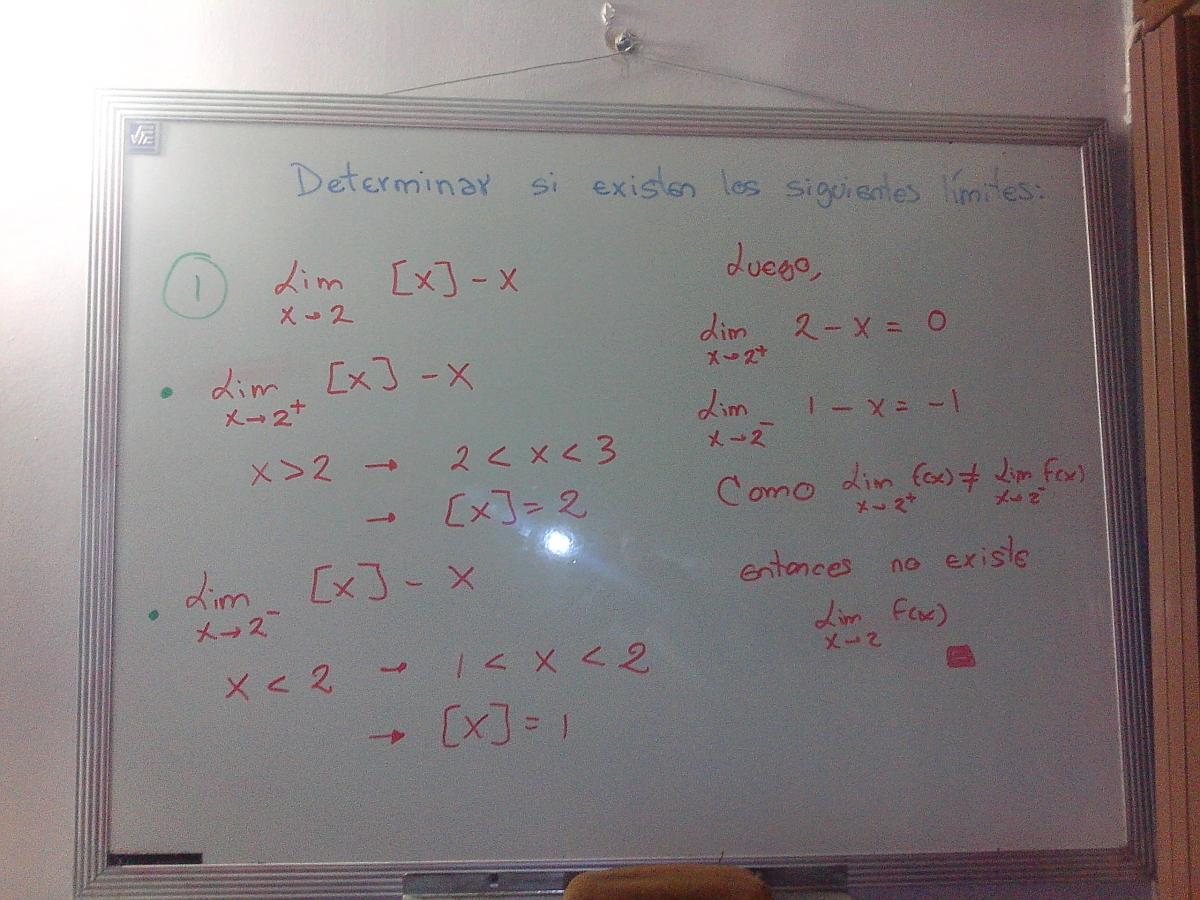 Determinar si existen los siguientes límites:
1
Lim [x] - x
x→2
Lim [x] - x
x→2⁺
x > 2 → 2 < x < 3
→ [x] = 2
Lim [x] - x
x→2⁻
x < 2 → 1 < x < 2
→ [x] = 1
Luego,
Lim 2 - x = 0
x→2⁺
Lim 1 - x = -1
x→2⁻
Como Lim f(x) ≠ Lim f(x)
x→2⁺ x→2⁻
entonces no existe
Lim f(x)
x→2